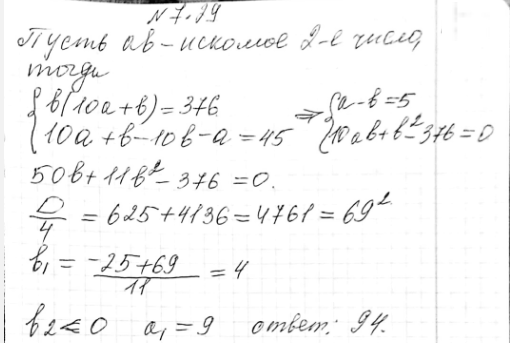 N 7.29
Пусть ab - искомое 2-е число,
тогда
{ b(10a+b)=376 ⇒ { a-b=5
{ 10a+b-10b-a=45 { 10ab+b²-376=0
50b+11b²-376=0.
D/4 = 625+4136=4761=69²
b₁ = (-25+69)/11 = 4
b2<0 a₁=9 ответ: 94.